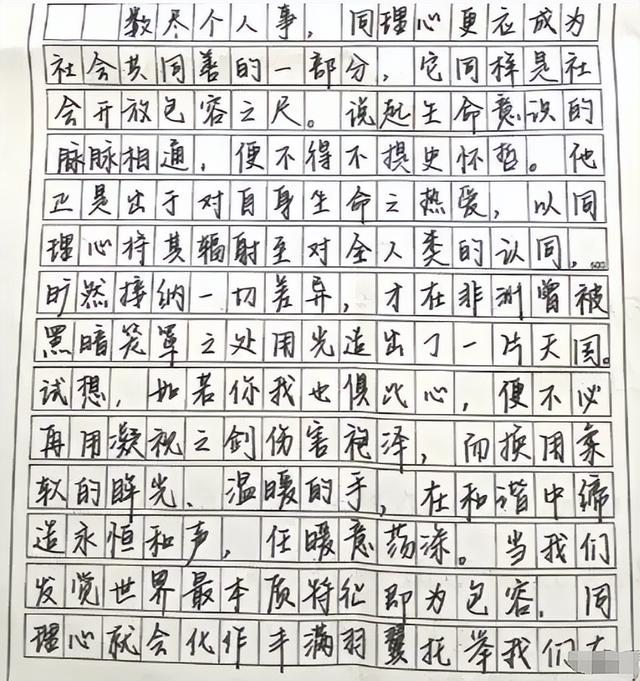 数尽个人事，同理心更应成为
社会共同善的一部分，它同样是社
会开放包容之尺。说起生命意识的
脉脉相通，便不得不提史怀哲。他
正是出于对自身生命之热爱，以同
理心将其辐射至对全人类的认同，
旷然接纳一切差异，才在非洲曾被
黑暗笼罩之处用光造出了一片天国。
试想，如若你我也俱此心，便不必
再用凝视之剑伤害袍泽，而换用柔
软的眸光、温暖的手，在和谐中缔
造永恒和声，任暖意荡漾。当我们
发觉世界最本质特征即为包容，同
理心就会化作丰满羽翼托举我们在